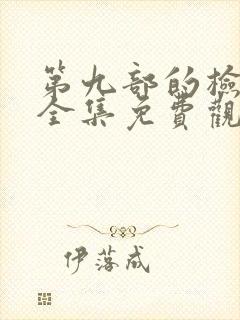 第九部的檢
全集免費觀
伊落成